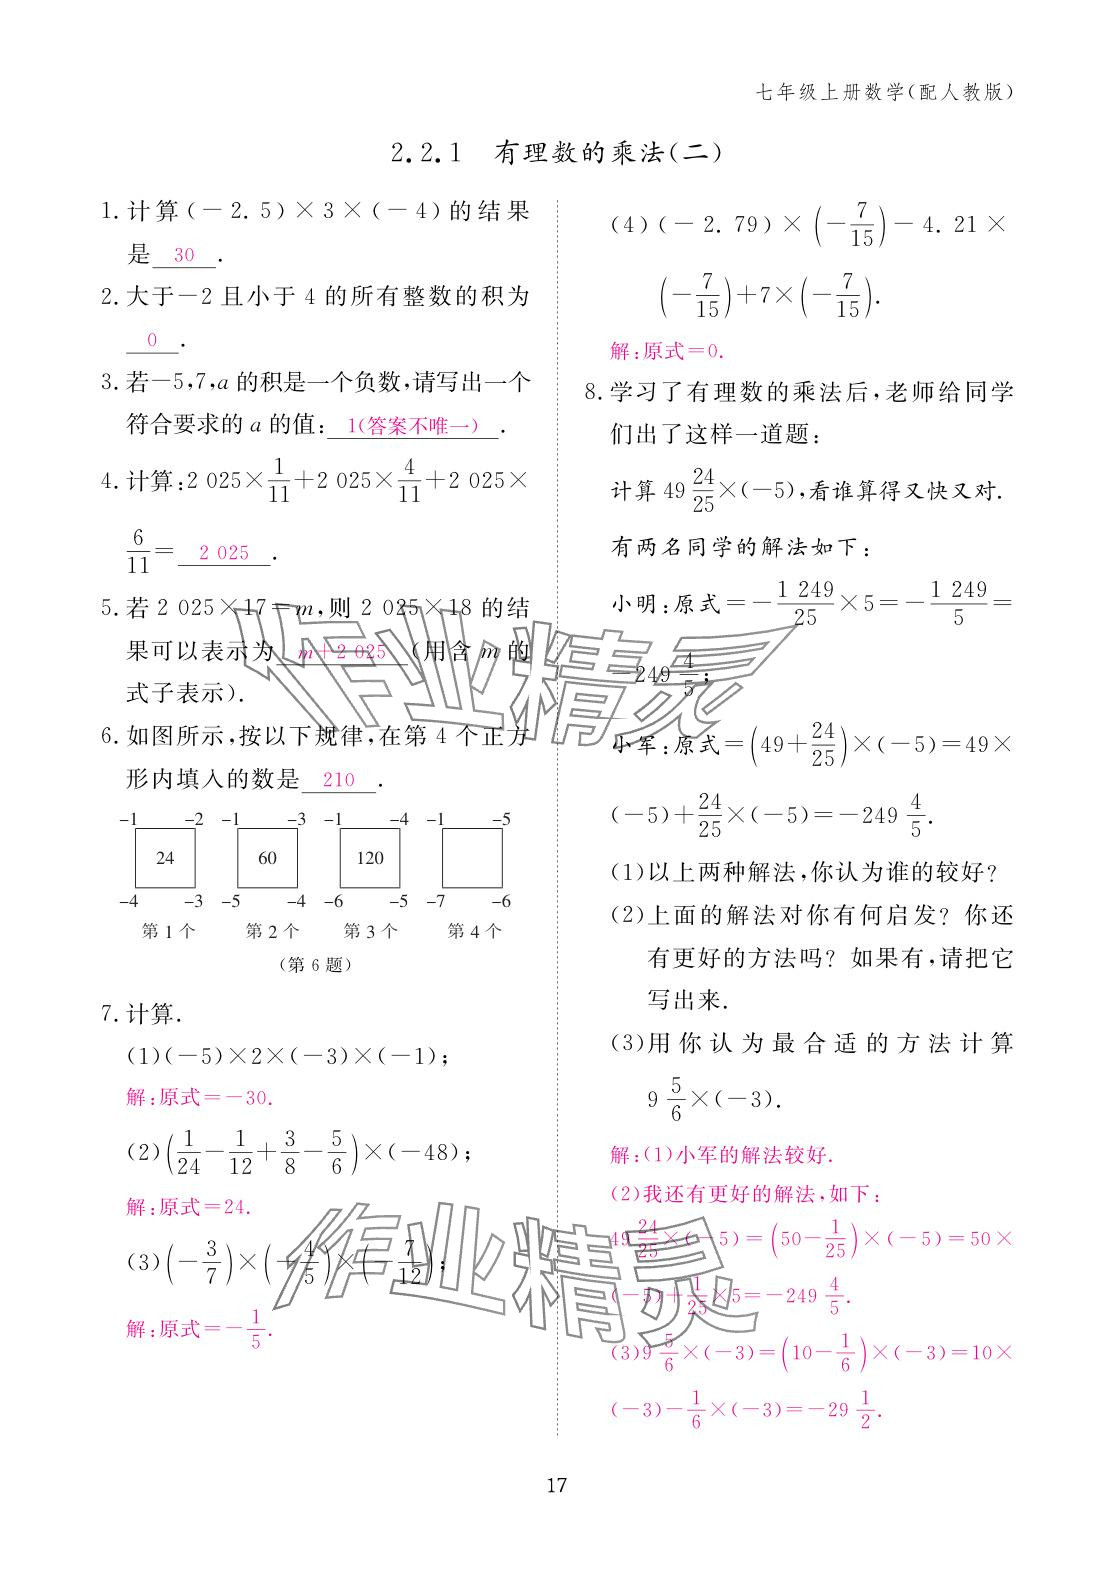 七年级上册数学(配人教版)
2.2.1 有理数的乘法(二)
1. 计算(-2.5)×3×(-4)的结果
是 30 .
2. 大于-2且小于4的所有整数的积为
0 .
3. 若-5,7,a的积是一个负数,请写出一个
符合要求的a的值: 1(答案不唯一) .
4. 计算:2 025×1/11+2 025×4/11+2 025×
6/11= 2 025 .
5. 若2 025×17=m,则2 025×18的结
果可以表示为 m+2 025 (用含m的
式子表示).
6. 如图所示,按以下规律,在第4个正方
形内填入的数是 210 .
-1 -2 -1 -3 -1 -4 -1 -5
24 60 120
-4 -3 -5 -4 -6 -5 -7 -6
第1个 第2个 第3个 第4个
(第6题)
7. 计算.
(1)(-5)×2×(-3)×(-1);
解:原式=-30.
(2)(1/24-1/12+3/8-5/6)×(-48);
解:原式=24.
(3)(-3/7)×(-4/5)×(-7/12);
解:原式=-1/5.
(4)(-2.79)×(-7/15)-4.21×
(-7/15)+7×(-7/15).
解:原式=0.
8. 学习了有理数的乘法后,老师给同学
们出了这样一道题:
计算49 24/25×(-5),看谁算得又快又对.
有两名同学的解法如下:
小明:原式=-1 249/25×5=-1 249/5=
-249 4/5;
小军:原式=(49+24/25)×(-5)=49×
(-5)+24/25×(-5)=-249 4/5.
(1)以上两种解法,你认为谁的较好?
(2)上面的解法对你有何启发?你还
有更好的方法吗?如果有,请把它
写出来.
(3)用你认为最合适的方法计算
9 5/6×(-3).
解:(1)小军的解法较好.
(2)我还有更好的解法,如下:
49 24/25×(-5)=(50-1/25)×(-5)=50×
(-5)+1/25×5=-249 4/5.
(3)9 5/6×(-3)=(10-1/6)×(-3)=10×
(-3)-1/6×(-3)=-29 1/2.
17
作业精灵
作业精灵